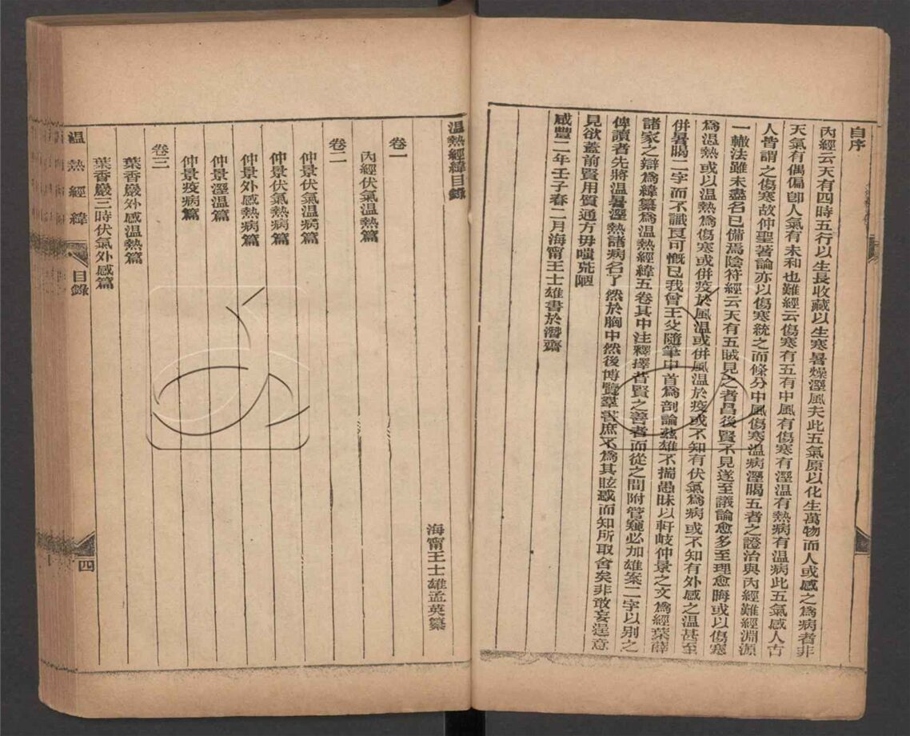 自序
內經云天有四時五行以生長收藏以生寒暑燥溼風夫此五氣原以化生萬物而人或感之為病者非
天氣有偶偏卽人氣有未和也難經云傷寒有五有中風有傷寒有溼溫有熱病有溫病此五氣感人古
人皆謂之傷寒故仲聖著論亦以傷寒統之而條分中風傷寒溫病溼暍五者之證治與內經難經淵源
一轍法雖未盡名已備焉陰符經云天有五賊見之者昌後賢不見遂至議論愈多至理愈晦或以傷寒
為溫熱或以溫熱為傷寒或併疫於風溫或併風溫於疫或不知有伏氣為病或不知有外感之溫甚至
併暑暍二字而不識良可慨已我曾王父隨筆中首為剖論茲雄不揣愚昧以軒岐仲景之文為經葉薛
諸家之辯為緯纂為溫熱經緯五卷其中注釋擇昔賢之善者而從之間附管窺必加雄案二字以別之
俾讀者先將溫暑溼熱諸病名了然於胸中然後博覽羣書庶不為其眩惑而知所取舍矣非敢妄逞意
見欲蓋前賢用質通方毋嗤荒陋
咸豐二年壬子春二月海甯王士雄書於潛齋
溫熱經緯目錄
海甯王士雄孟英纂
卷一
內經伏氣溫熱篇
卷二
仲景伏氣溫病篇
仲景伏氣熱病篇
仲景外感熱病篇
仲景溼溫篇
仲景疫病篇
卷三
葉香巖外感溫熱篇
葉香巖三時伏氣外感篇
溫熱經緯 目錄 四